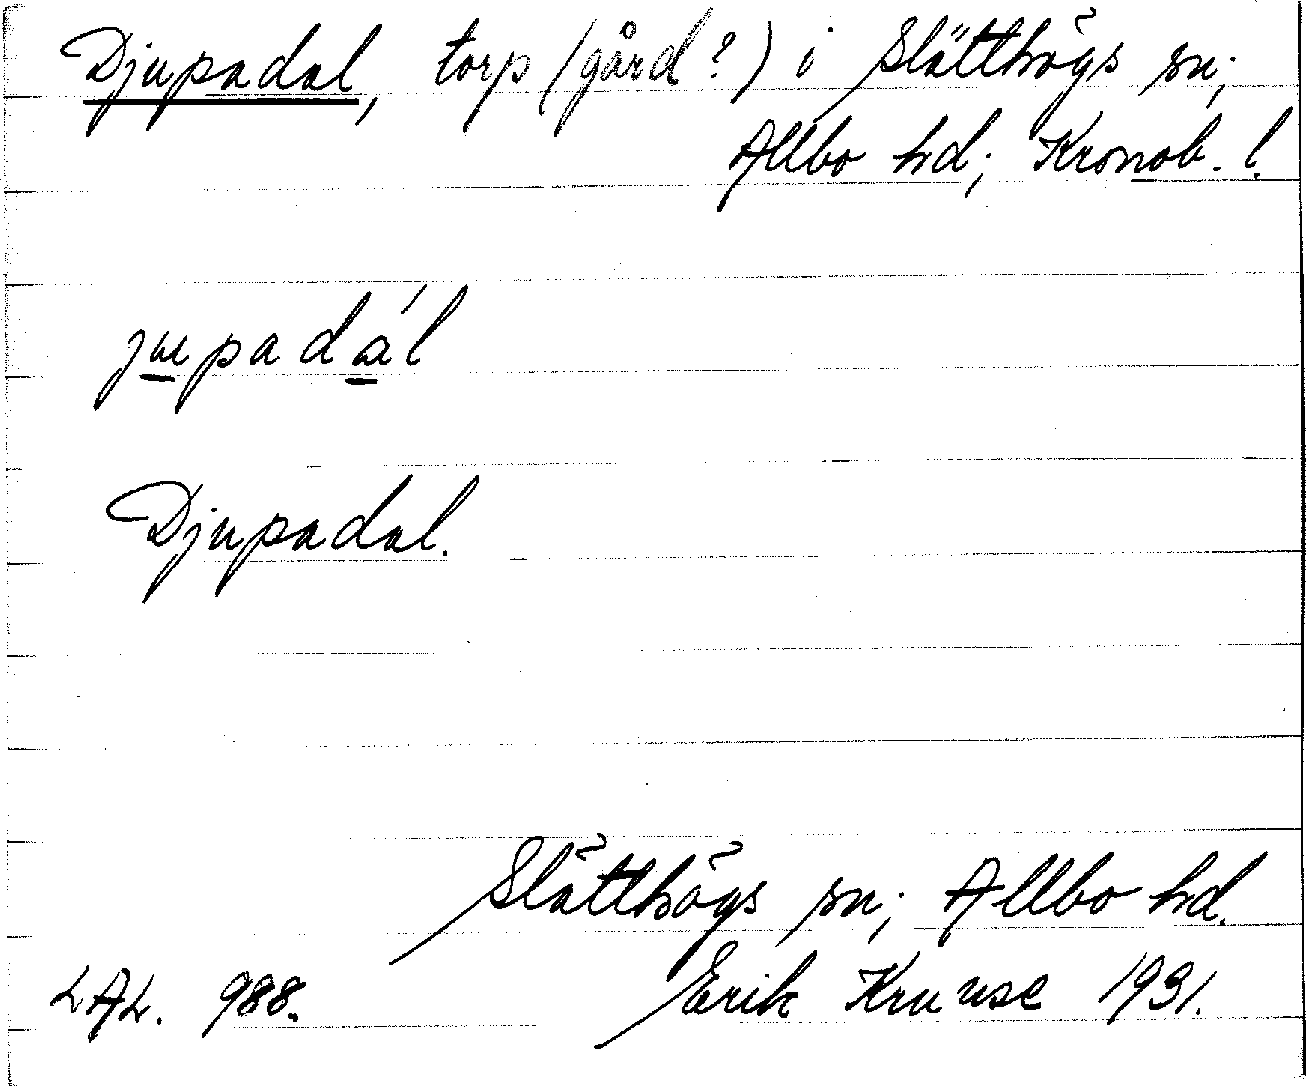 Djupadal, torp (gård?) i Slätthögs sn;
Allbo hd; Kronob. l.
jupadál
Djupadal.
Slätthögs sn; Allbo hd.
LAL. 988. Erik Kruuse 1931.